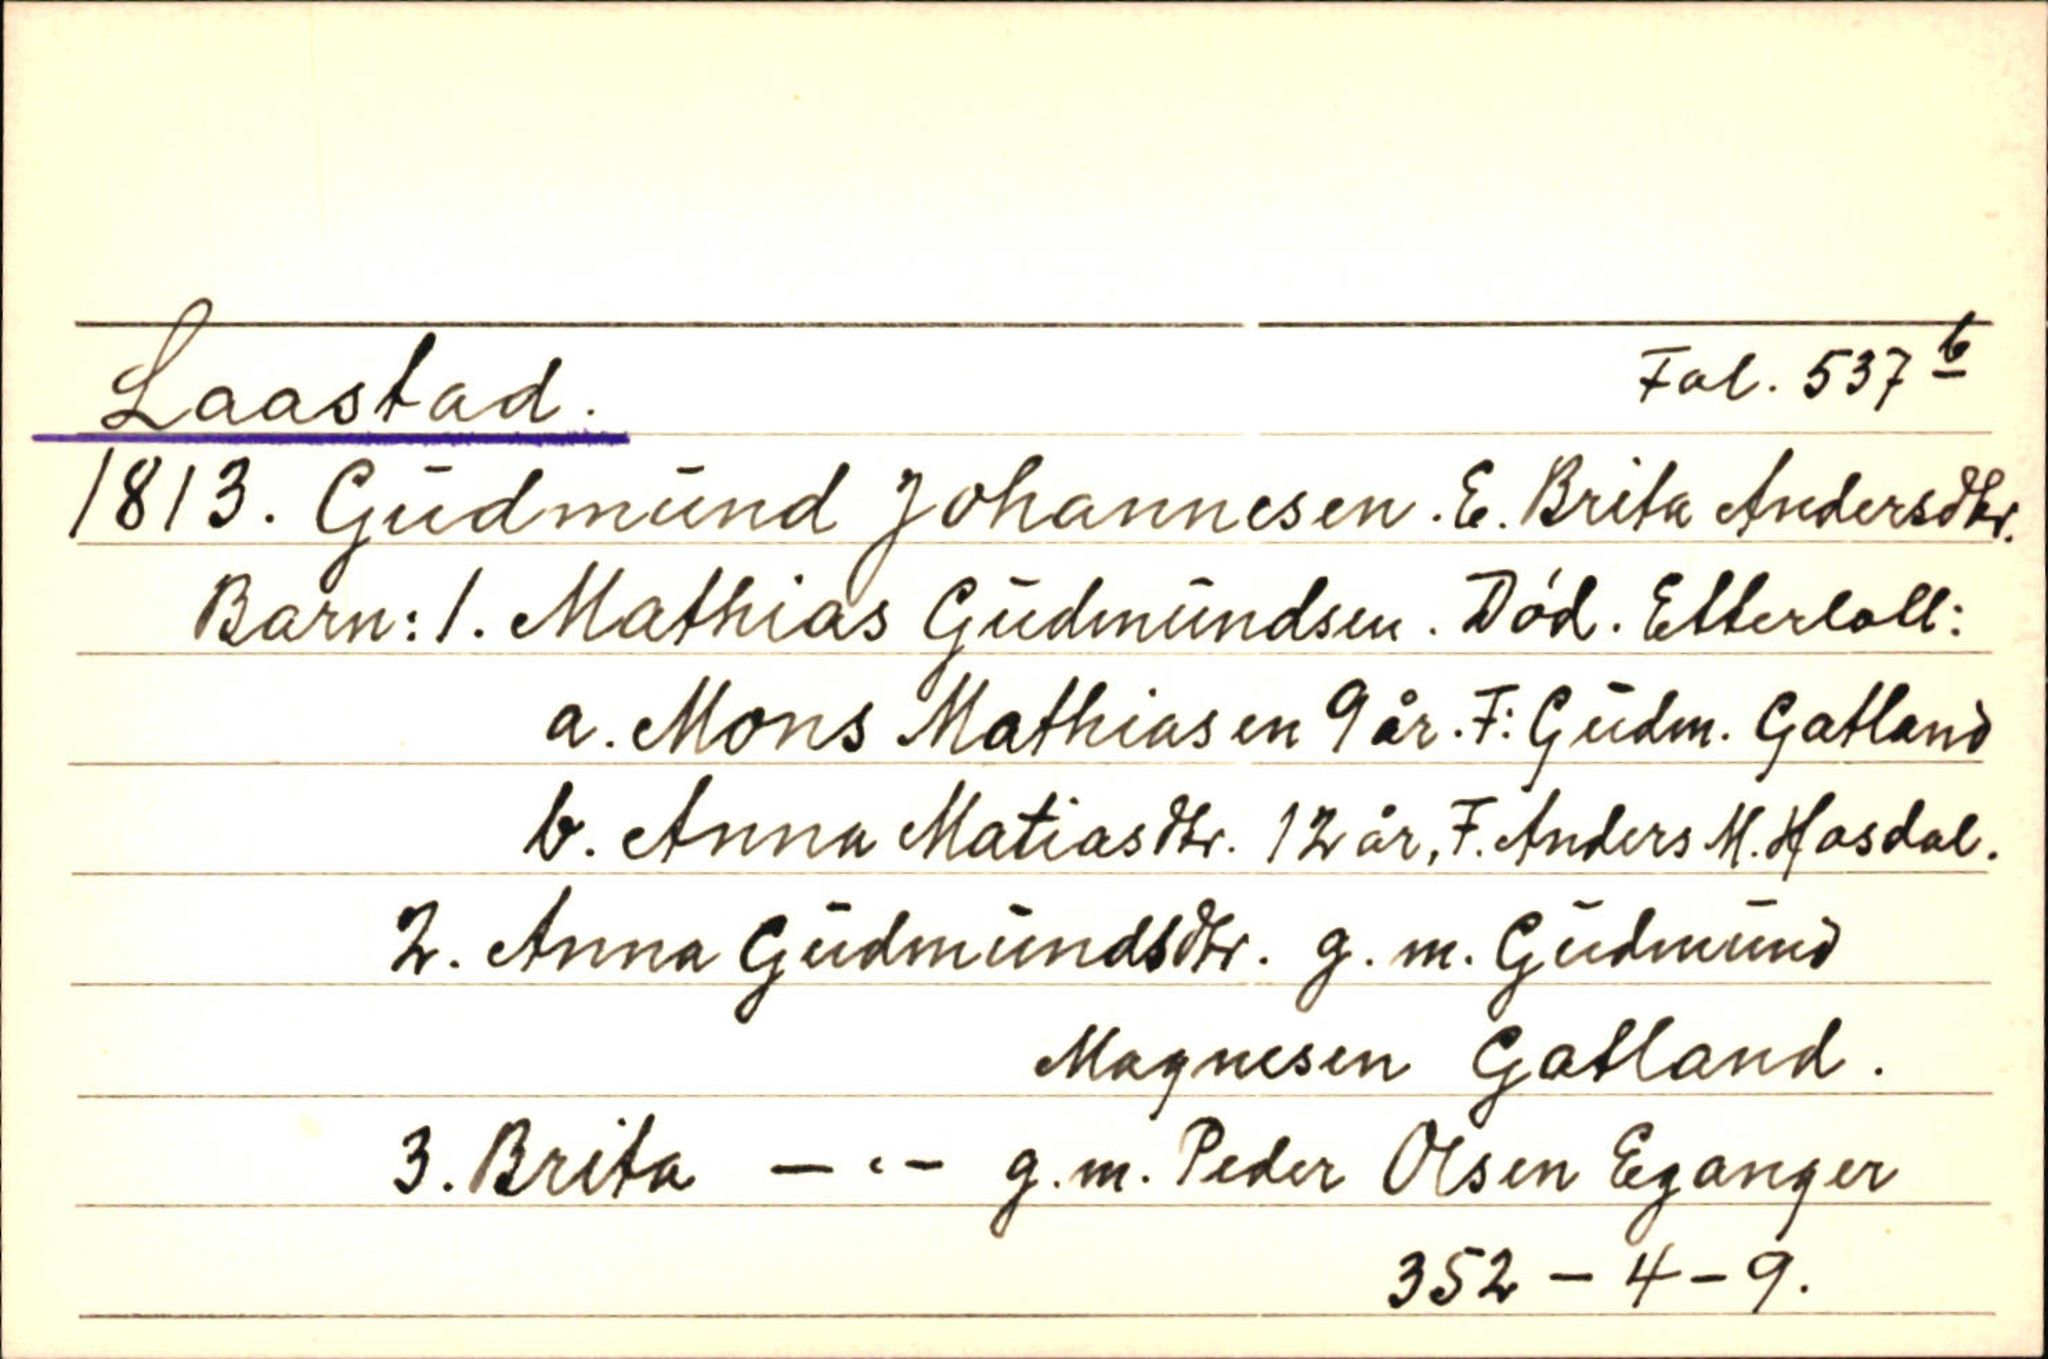 Laastad. Fol. 537 b
1813. Gudmund Johannesen. E. Brita Andersdtr.
Barn: 1. Mathias Gudmundsen. Död. Etterlott:
a. Mons Mathiasen 9 år. F: Gudm. Gatland
b. Anna Matiasdtr. 12 år, F. Anders M. Hosdal.
2. Anna Gudmundsdtr. g. m. Gudmund
Magnesen Gatland.
3. Brita —"— g. m. Peder Olsen Eganger
352 - 4 - 9.